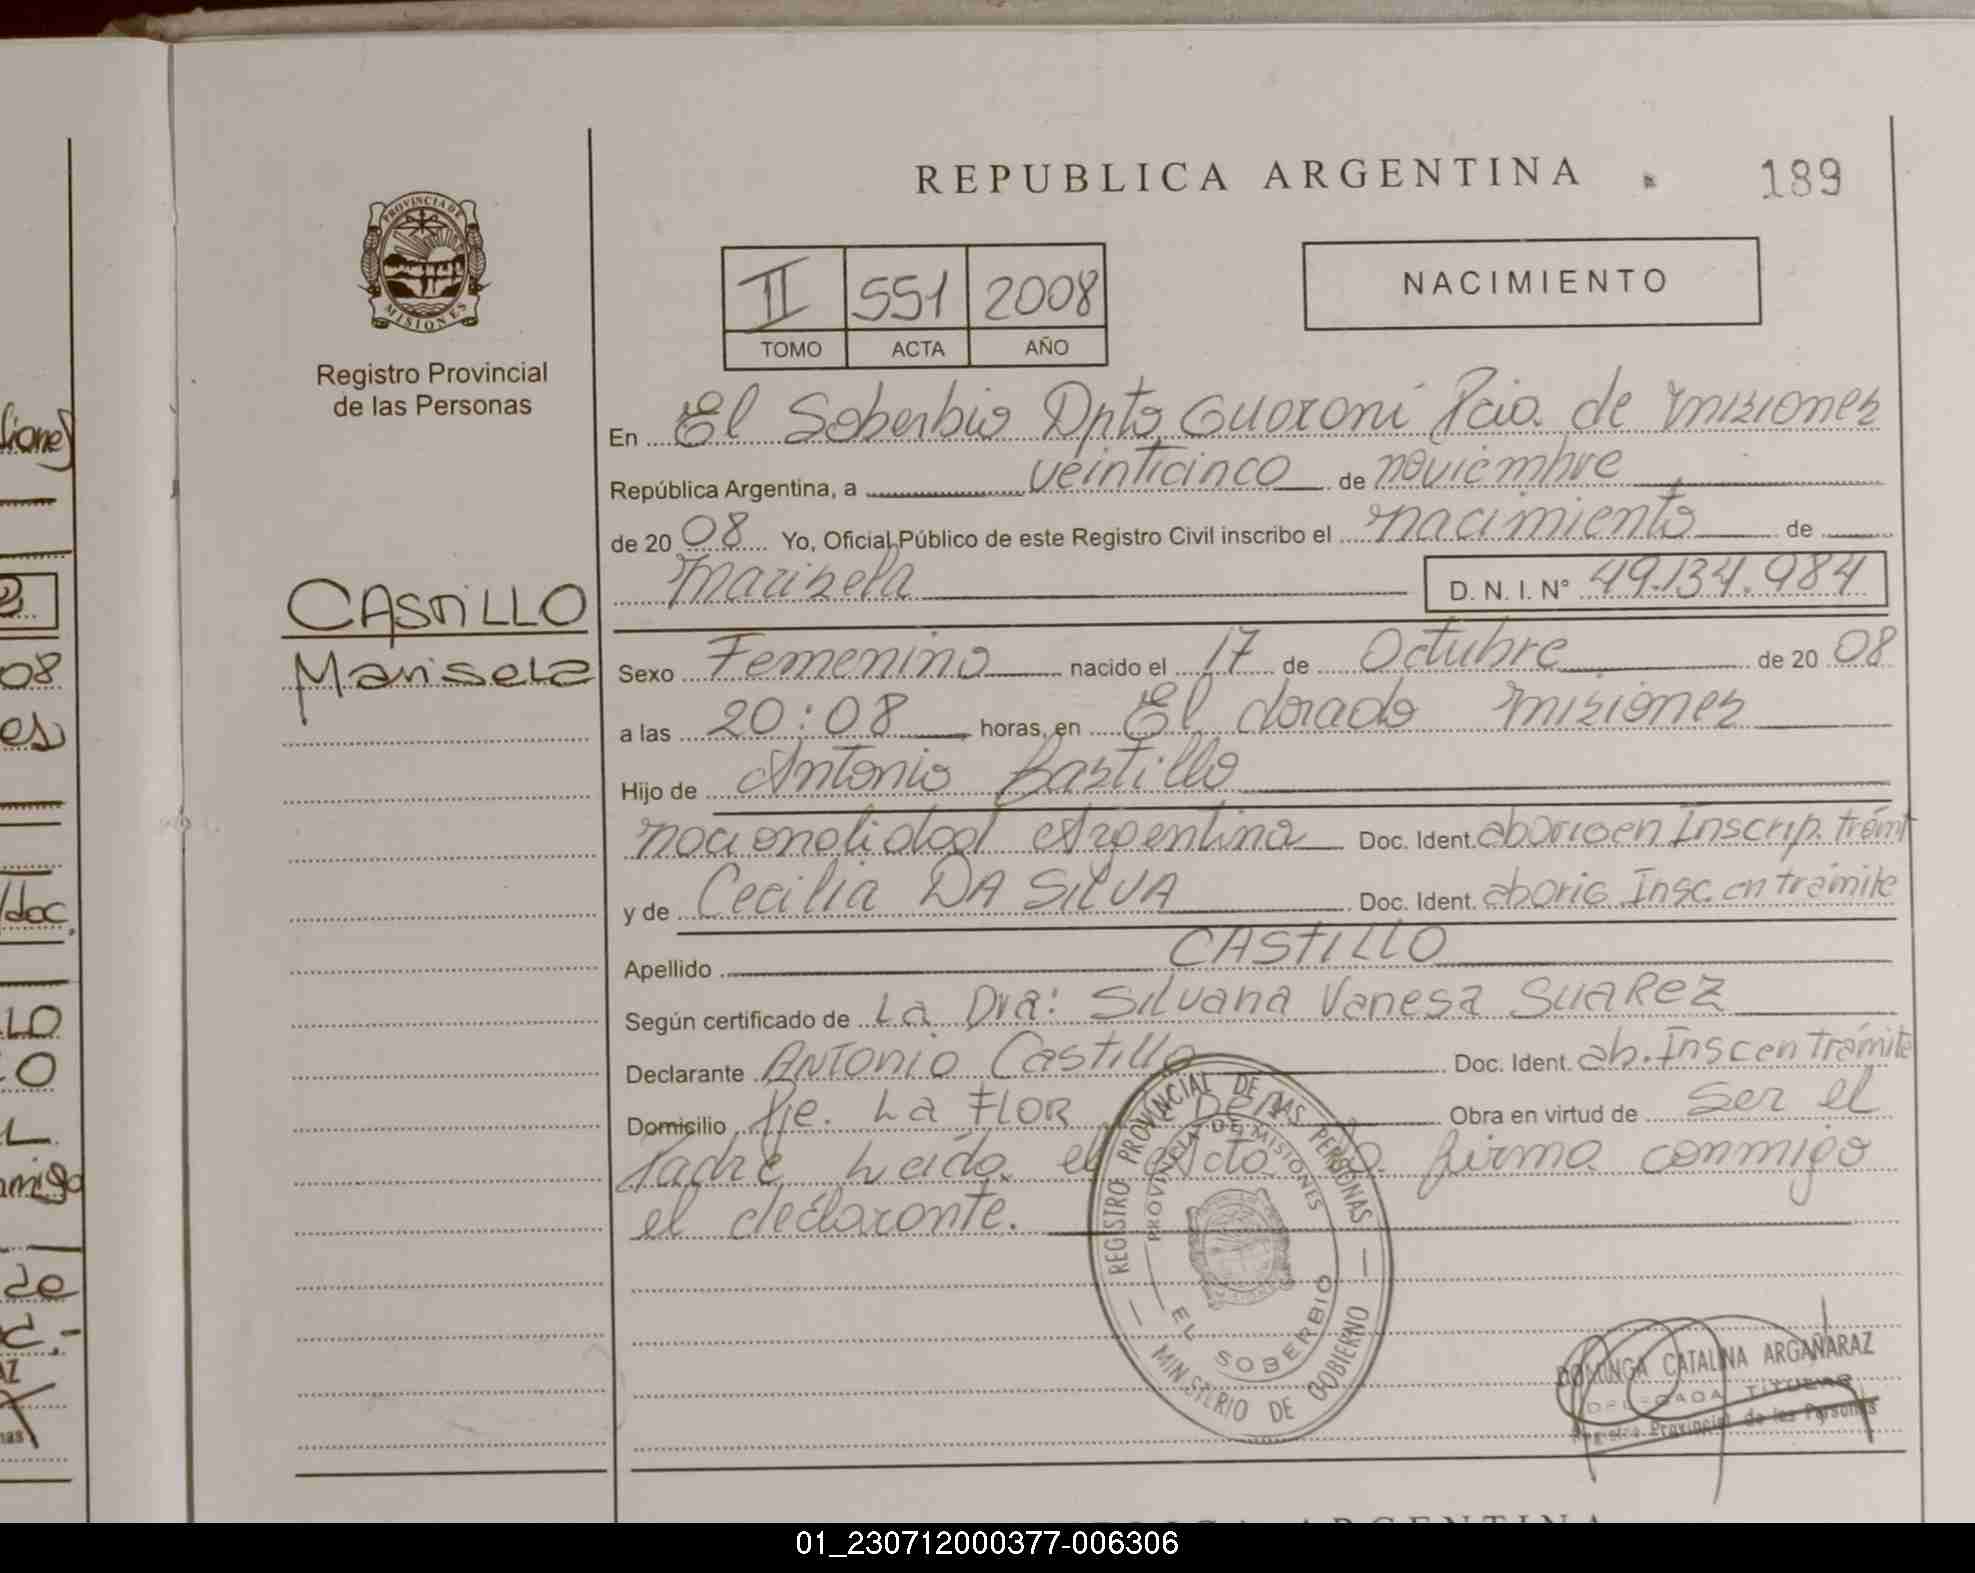 REPUBLICA ARGENTINA
189
PROVINCIA DE
MISIONES
Registro Provincial
de las Personas
II 551 2008
TOMO ACTA AÑO
NACIMIENTO
En El Soberbio Dpto Guarani Pcia. de misiones
República Argentina, a veinticinco de noviembre
de 20 08 Yo, Oficial Público de este Registro Civil inscribo el nacimiento de
marisela D. N. I. Nº 49.134.984
CASTILLO
Marisela
Sexo Femenino nacido el 17 de Octubre de 20 08
a las 20:08 horas, en El dorado misiones
Hijo de Antonio Castillo
nacionalidad Argentina Doc. Ident. aborigen Inscrip. trámt
y de Cecilia DA SILVA Doc. Ident. aborig Insc. en trámite
Apellido CASTILLO
Según certificado de La Dra: Silvana Vanesa SUAREZ
Declarante ANTONIO Castillo Doc. Ident. ab. Insc en Trámite
Domicilio Pje. La FLOR Obra en virtud de ser el
Padre Leída el Acta la firma conmigo
el declarante.
REGISTRO PROVINCIAL DE LAS PERSONAS
PROVINCIA DE MISIONES
EL SOBERBIO
MINISTERIO DE GOBIERNO
DOMINGA CATALINA ARGAÑARAZ
DELEGADA TITULAR
Registro Provincial de las Personas
01_230712000377-006306